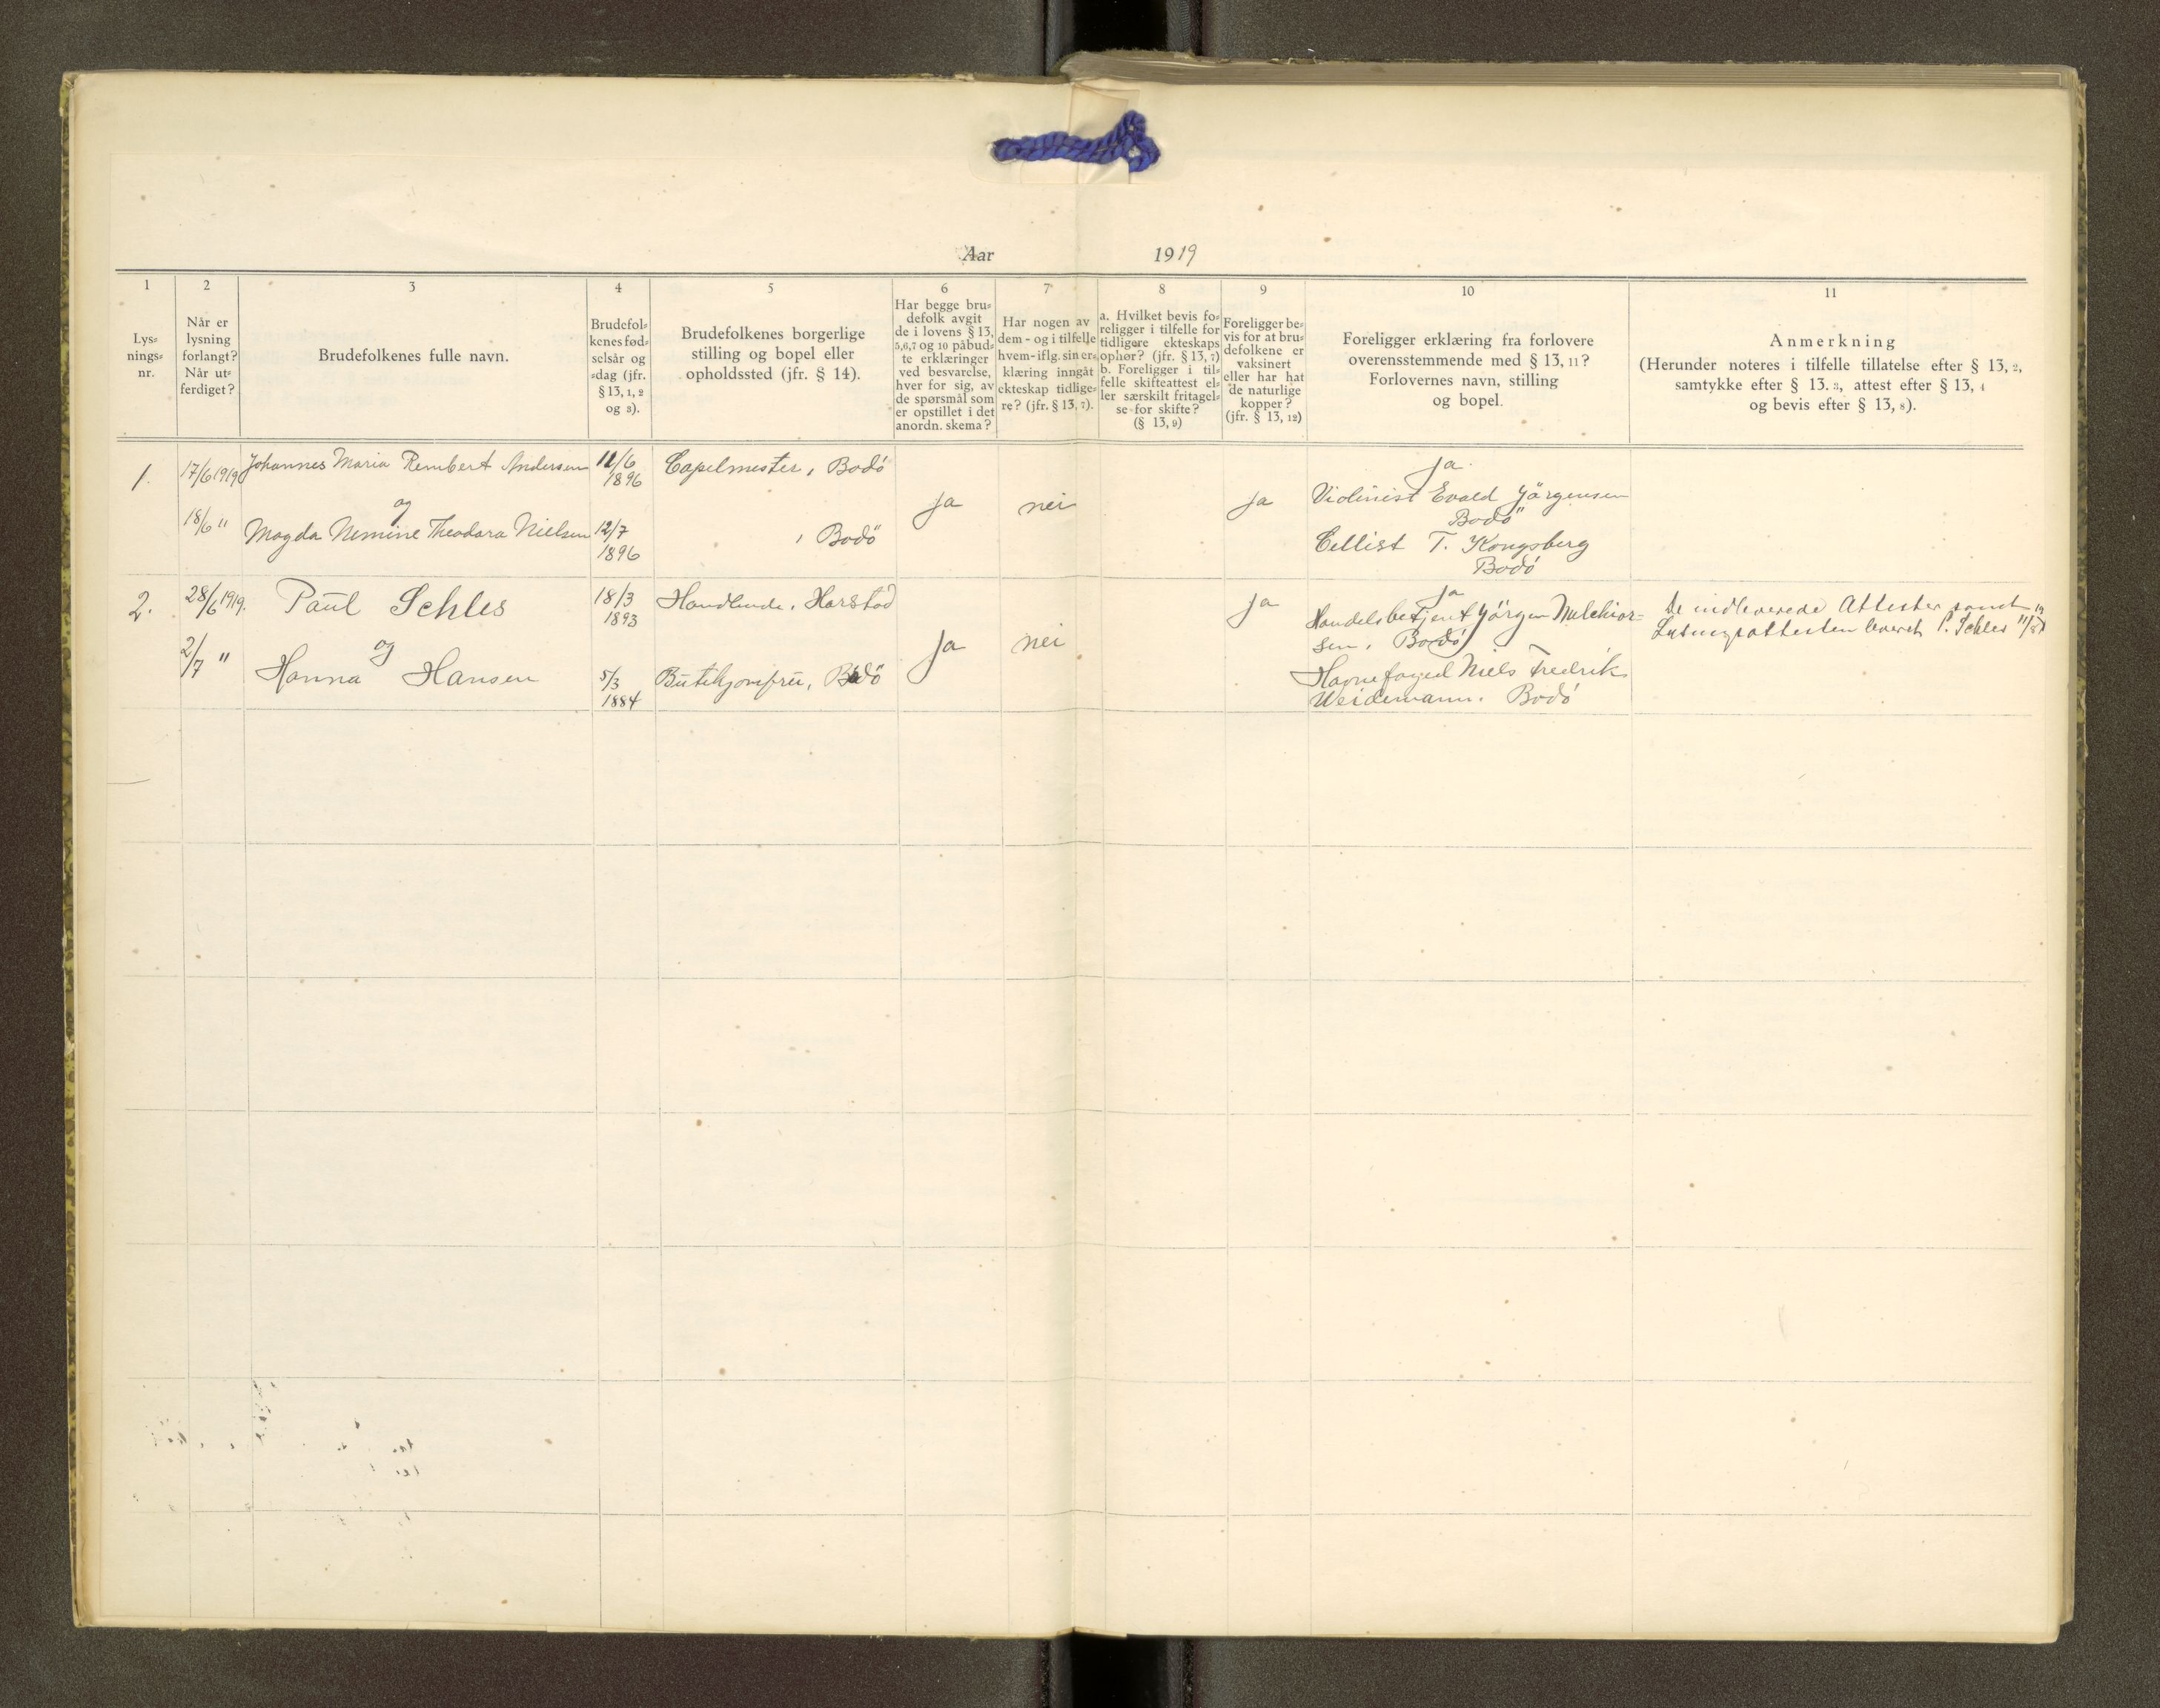 Aar 1919
1
Lys-
nings-
nr.
2
Når er
lysning
forlangt?
Når ut-
ferdiget?
3
Brudefolkenes fulle navn.
4
Brudefol-
kenes fød-
selsår og
-dag (jfr.
§ 13, 1, 2
og 3).
5
Brudefolkenes borgerlige
stilling og bopel eller
opholdssted (jfr. § 14).
6
Har begge bru-
defolk avgit
de i lovens § 13,
5,6,7 og 10 påbud-
te erklæringer
ved besvarelse,
hver for sig, av
de spørsmål som
er opstillet i det
anordn. skema?
7
Har nogen av
dem - og i tilfelle
hvem - iflg. sin er-
klæring inngåt
ekteskap tidlige-
re? (jfr. § 13, 7).
8
a. Hvilket bevis fo-
religger i tilfelle for
tidligere ekteskaps
ophør? (jfr. § 13, 7)
b. Foreligger i til-
felle skifteattest el-
ler særskilt fritagel-
se for skifte?
(§ 13, 9)
9
Foreligger be-
vis for at bru-
defolkene er
vaksinert
eller har hat
de naturlige
kopper?
(jfr. § 13, 12)
10
Foreligger erklæring fra forlovere
overensstemmende med § 13, 11?
Forlovernes navn, stilling
og bopel.
11
Anmerkning
(Herunder noteres i tilfelle tillatelse efter § 13, 2,
samtykke efter § 13. 3, attest efter § 13, 4
og bevis efter § 13, 8).
1.
17/6 1919
18/6 "
Johannes Maria Rembert Andersen
og
Magda Nemine Theodora Nielsen
11/6
1896
12/7
1896
Capelmester, Bodö
, Bodö
ja
nei
ja
ja.
Violinist Evald Jörgensen
Bodö
Cellist T. Kongsberg
Bodö
2.
28/6 1919.
2/7 "
Paul Schles
og
Hanna Hansen
18/3
1893
5/3
1884
Handlende, Harstad
Butikjomfru, Bodö
ja
nei
ja
ja
Handelsbetjent Jörgen Melchior-
sen, Bodö
Havnefoged Niels Fredrik
Weidemann. Bodö
De indleverede Attester samt
Lysningsattesten leveret P. Schles